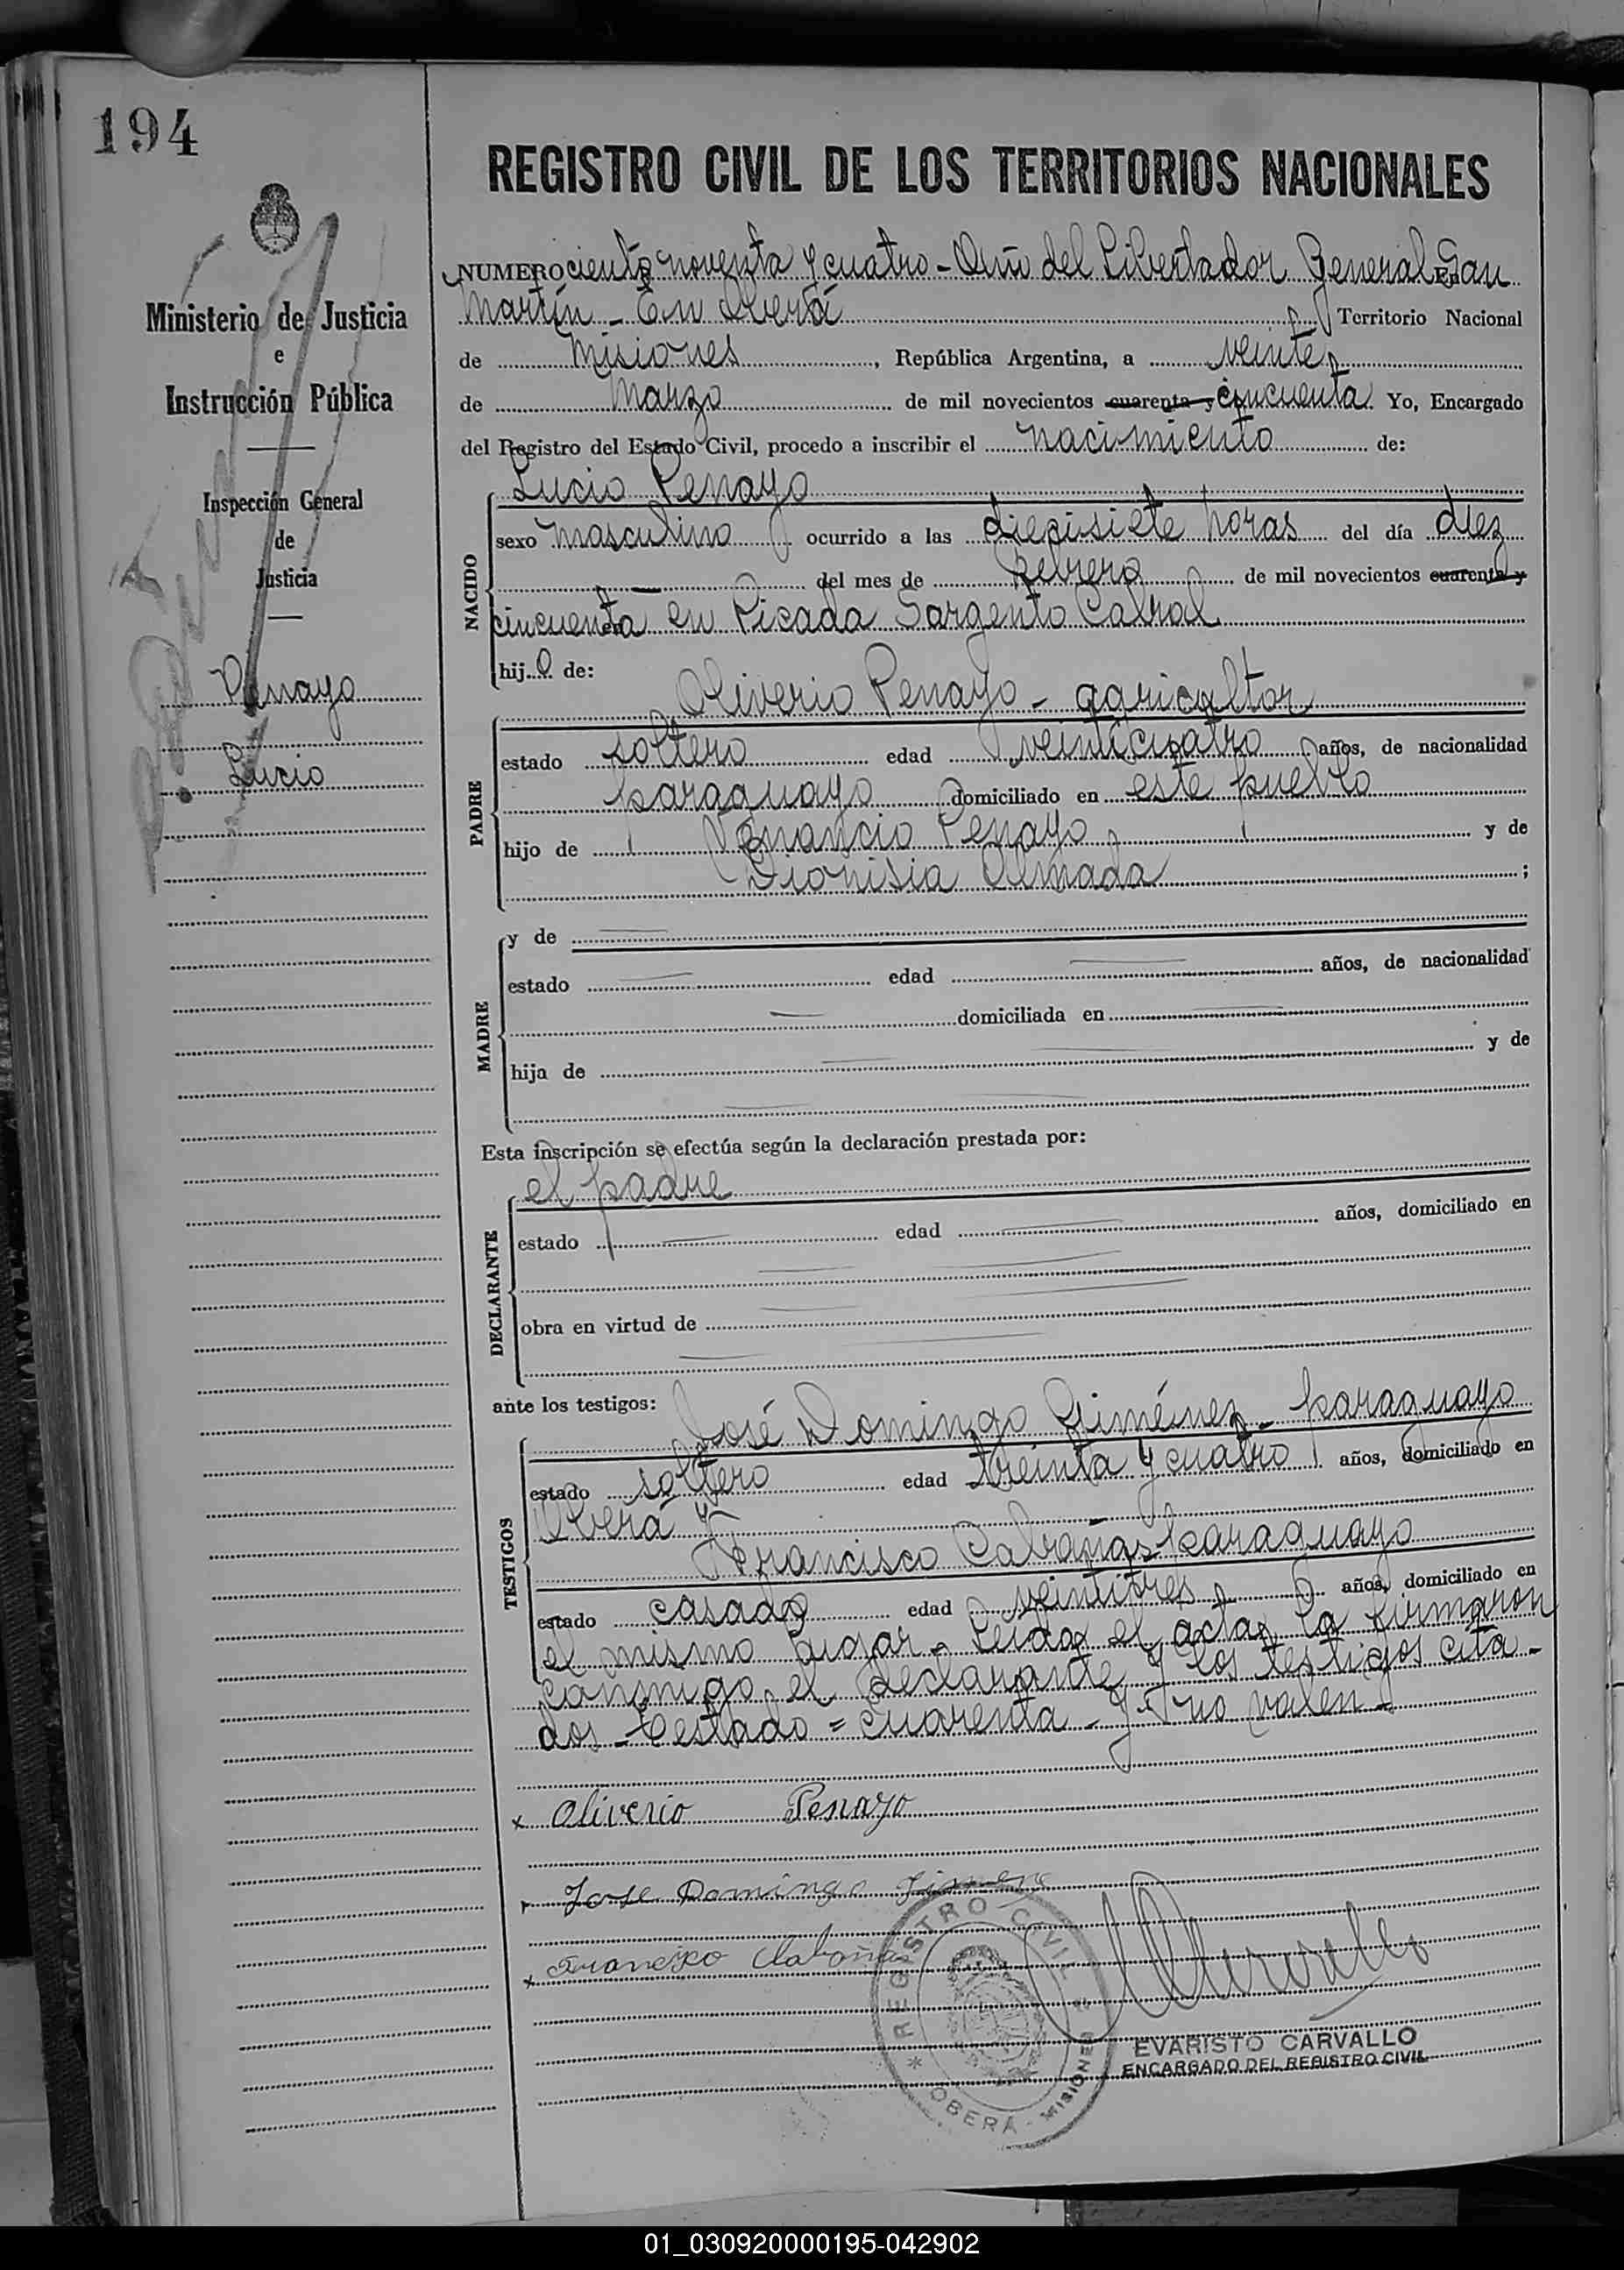 194
REGISTRO CIVIL DE LOS TERRITORIOS NACIONALES
NUMERO ciento noventa y cuatro - Año del Libertador General San
Martín - En Oberá Territorio Nacional
de Misiones, República Argentina, a veinte
de Marzo de mil novecientos cuarenta y cincuenta Yo, Encargado
del Registro del Estado Civil, procedo a inscribir el nacimiento de:
Lucio Penayo
NACIDO
sexo masculino ocurrido a las diecisiete horas del día diez
del mes de febrero de mil novecientos cuarenta y
cincuenta en Picada Sargento Cabral
hijo de:
Oliverio Penayo - agricultor
PADRE
estado soltero edad veinticuatro años, de nacionalidad
paraguayo domiciliado en este pueblo
hijo de Venancio Penayo y de
Dionisia Almada ;
MADRE
y de
estado edad años, de nacionalidad
domiciliada en
hija de y de
Esta inscripción se efectúa según la declaración prestada por:
el padre
DECLARANTE
estado edad años, domiciliado en
obra en virtud de
ante los testigos:
José Domingo Giménez - paraguayo
TESTIGOS
estado soltero edad treinta y cuatro años, domiciliado en
Oberá y
Francisco Cabañas paraguayo
estado casado edad veintitres años, domiciliado en
el mismo lugar. Leida el acta, la firmaron
conmigo el declarante y los testigos cita-
dos - Testado = cuarenta - y - no valen -
x Oliverio Penayo
Jose Domingo Jimene
x Francisco Cabañas
REGISTRO CIVIL
* OBERÁ - MISIONES
EVARISTO CARVALLO
ENCARGADO DEL REGISTRO CIVIL
Ministerio de Justicia
e
Instrucción Pública
Inspección General
de
Justicia
Penayo
Lucio
01_030920000195-042902